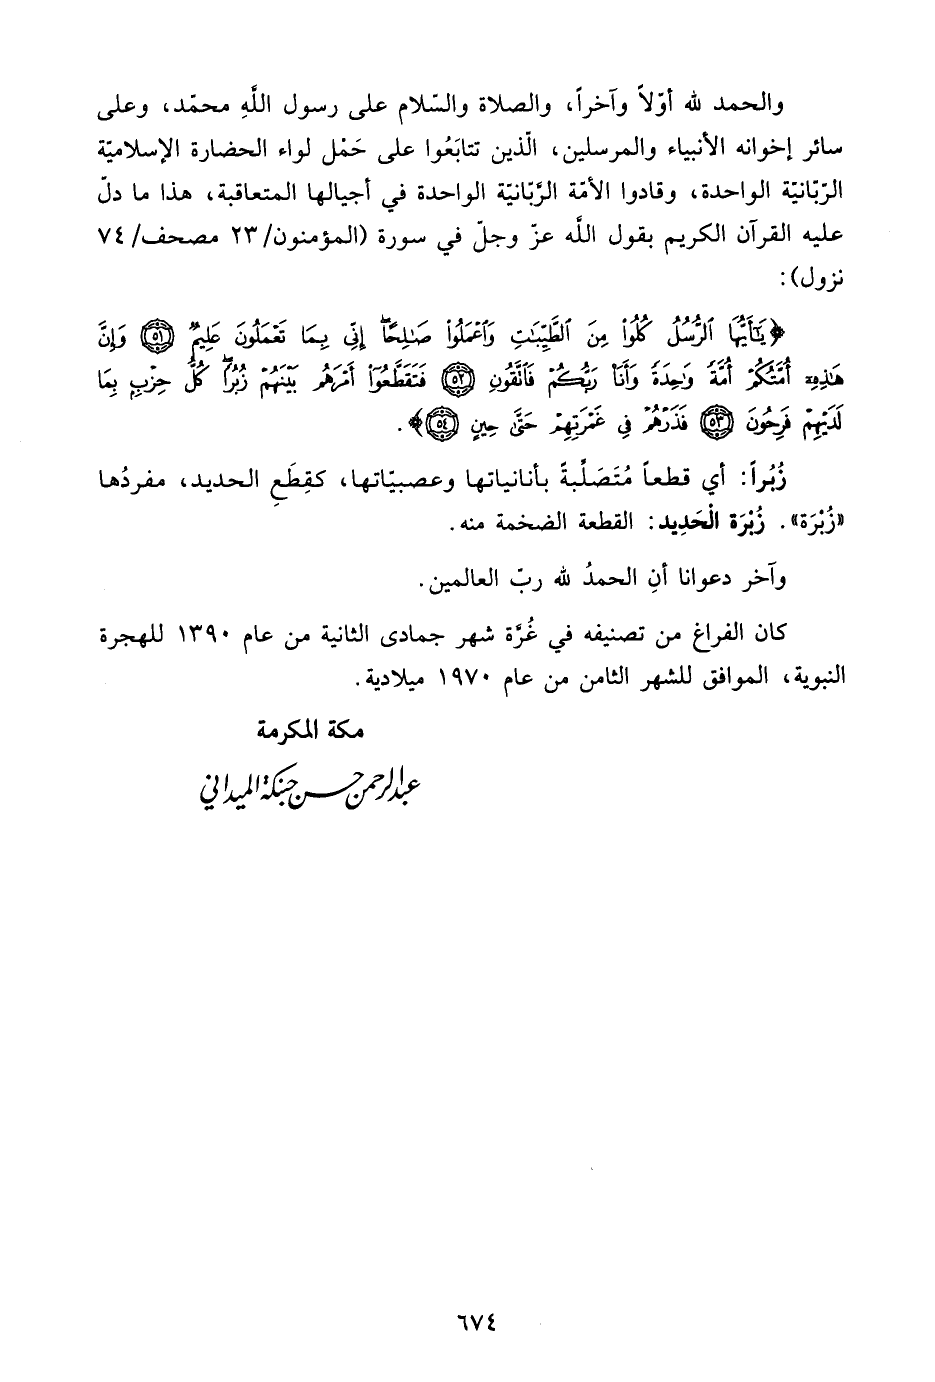 والحمد لله أوّلاً وآخراً، والصلاة والسّلام على رسول اللَّهِ محمّد، وعلى
سائر إخوانه الأنبياء والمرسلين، الّذين تتابَعُوا على حَمْل لواء الحضارة الإسلاميّة
الرّبّانيّة الواحدة، وقادوا الأمّة الرَّبّانيّة الواحدة في أجيالها المتعاقبة، هذا ما دلّ
عليه القرآن الكريم بقول اللَّه عزّ وجلّ في سورة (المؤمنون/ ٢٣ مصحف/ ٧٤
نزول):
﴿يَٰٓأَيُّهَا ٱلرُّسُلُ كُلُوا۟ مِنَ ٱلطَّيِّبَٰتِ وَٱعْمَلُوا۟ صَٰلِحًا ۖ إِنِّى بِمَا تَعْمَلُونَ عَلِيمٌ ﴿٥١﴾ وَإِنَّ
هَٰذِهِۦٓ أُمَّتُكُمْ أُمَّةً وَٰحِدَةً وَأَنَا۠ رَبُّكُمْ فَٱتَّقُونِ ﴿٥٢﴾ فَتَقَطَّعُوٓا۟ أَمْرَهُم بَيْنَهُمْ زُبُرًا ۖ كُلُّ حِزْبٍۭ بِمَا
لَدَيْهِمْ فَرِحُونَ ﴿٥٣﴾ فَذَرْهُمْ فِى غَمْرَتِهِمْ حَتَّىٰ حِينٍ ﴿٥٤﴾﴾.
زُبُراً: أي قطعاً مُتَصَلِّبةً بأنانياتها وعصبيّاتها، كقِطَعِ الحديد، مفردُها
«زُبْرَة». زُبْرَة الْحَدِيد: القطعة الضخمة منه.
وآخر دعوانا أنِ الحمدُ لله ربّ العالمين.
كان الفراغ من تصنيفه في غُرَّة شهر جمادى الثانية من عام ١٣٩٠ للهجرة
النبوية، الموافق للشهر الثامن من عام ١٩٧٠ ميلادية.
مكة المكرمة
عبدالرحمن حسن حبنكة الميداني
٦٧٤